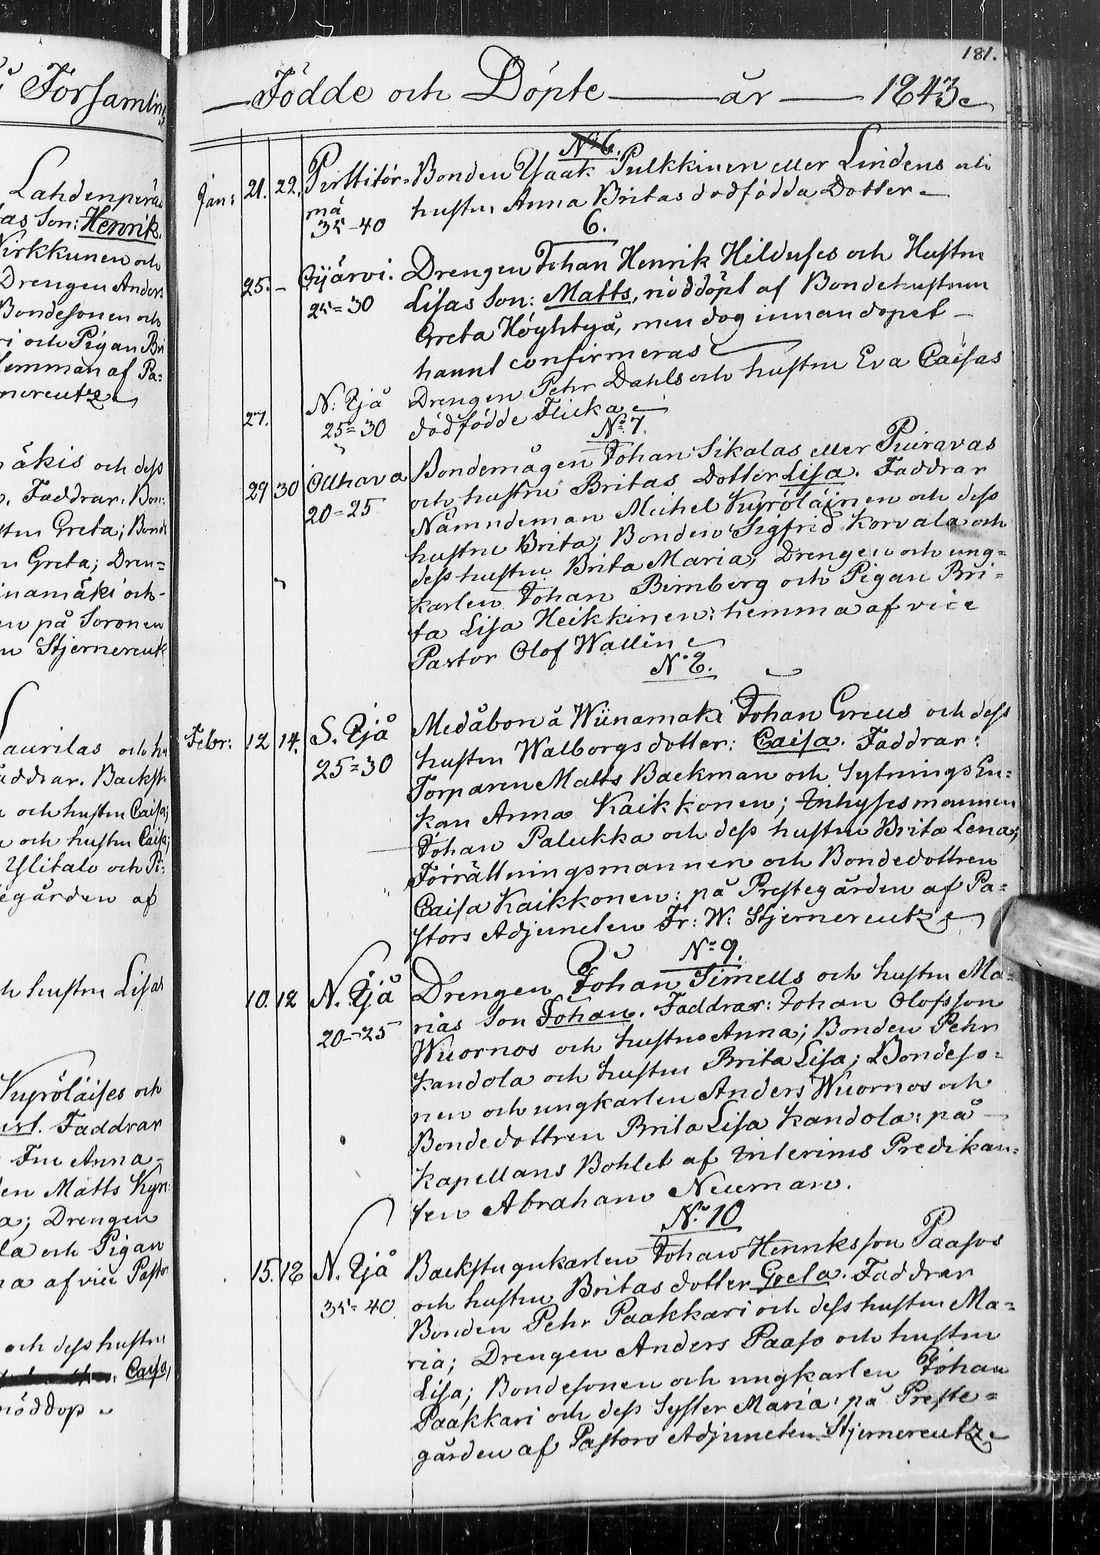 181.
Församlin
Födde och Döpte år 1843
Lahdenperä
as Son: Henrik.
Kirkkunen och
Drengen Anders
Bondesonen och
ri och Pigan Bri
Hemman af Pa=
rnereutz
äkis och dess
Faddrar. Bon:
stun Greta; Bond
n Greta; Dren=
inamäki och
en på Soronen
n Stjernereut
Laurilas och h
addrar. Backst
a och hustrn Caisa;
a och hustrn Caisa;
Ylitalo och Pi:
egården af
h hustru Lisas
Kyröläises och
Faddrar
Fru Anna
en Matts Kyr
a; Drengen
la och Pigan
na af vice Pastor
och dess hustru
Caisa,
nöddöp
N:o 6.
Jan: 21. 22. Perttitör=
mä
35-40
Bonden Isaak Pulkkinen eller Lindens och
hustru Anna Britas dödfödda Dotter
6.
25. - Ojjärvi.
25=30
Drengen Johan Henrik Hilduses och Hustru
Lisas Son: Matts, nöddöpt af Bondehustrun
Greta Höyhtyä, men dog innan dopet
hunnt confirmeras
27. N: Ijå
25=30
Drengen Pehr Dahls och hustru Eva Caisas
dödfödde Flicka
N:o 7.
29 30 Ollhava
20=25
Bondemågen Johan Sikalas eller Puiravas
och hustru Britas Dotter Lisa. Faddrar
Nämndeman Michel Kyröläinen och dess
hustru Brita; Bonden Sigfrid Korvala och
dess hustru Brita Maria; Drengen och ung=
karlen Johan Birnberg och Pigan Bri=
ta Lisa Heikkinen: hemma af vice
Pastor Olof Wallin
N:o 8.
Febr: 12 14. S. Ijå
25=30
Medåbon å Wiinamäki Johan Greus och dess
hustru Walborgs dotter: Caisa. Faddrar:
Torparen Matts Backman och SytningsEn=
kan Anna Kaikkonen; Inhysesmannen
Johan Palukka och dess hustru Brita Lena;
Förrättningsmannen och Bondedottren
Caisa Kaikkonen: på Prestegården af Pa=
stors Adjuncten Fr: W: Stjernereutz
N:o 9.
10. 12 N. Ijå
20-25
Drengen Johan Timells och hustru Ma=
rias Son Johan. Faddrar: Johan Olofsson
Wuornos och hustru Anna; Bonden Pehr
Kandola och hustru Brita Lisa; Bondeso=
nen och ungkarlen Anders Wuornos och
Bondedottren Brita Lisa Kandola: på
Kapellans Bohlet af Interims Predikan=
ten Abraham Neuman.
N:o 10
15. 18 N. Ijå
35=40
Backstugukarlen Johan Henriksson Paasos
och hustru Britas dotter Greta. Faddrar
Bonden Pehr Paakkari och dess hustru Ma=
ria; Drengen Anders Paaso och hustru
Lisa; Bondesonen och ungkarlen Johan
Paakkari och dess Syster Maria: på Preste=
gården af Pastors Adjuncten Stjernereutz